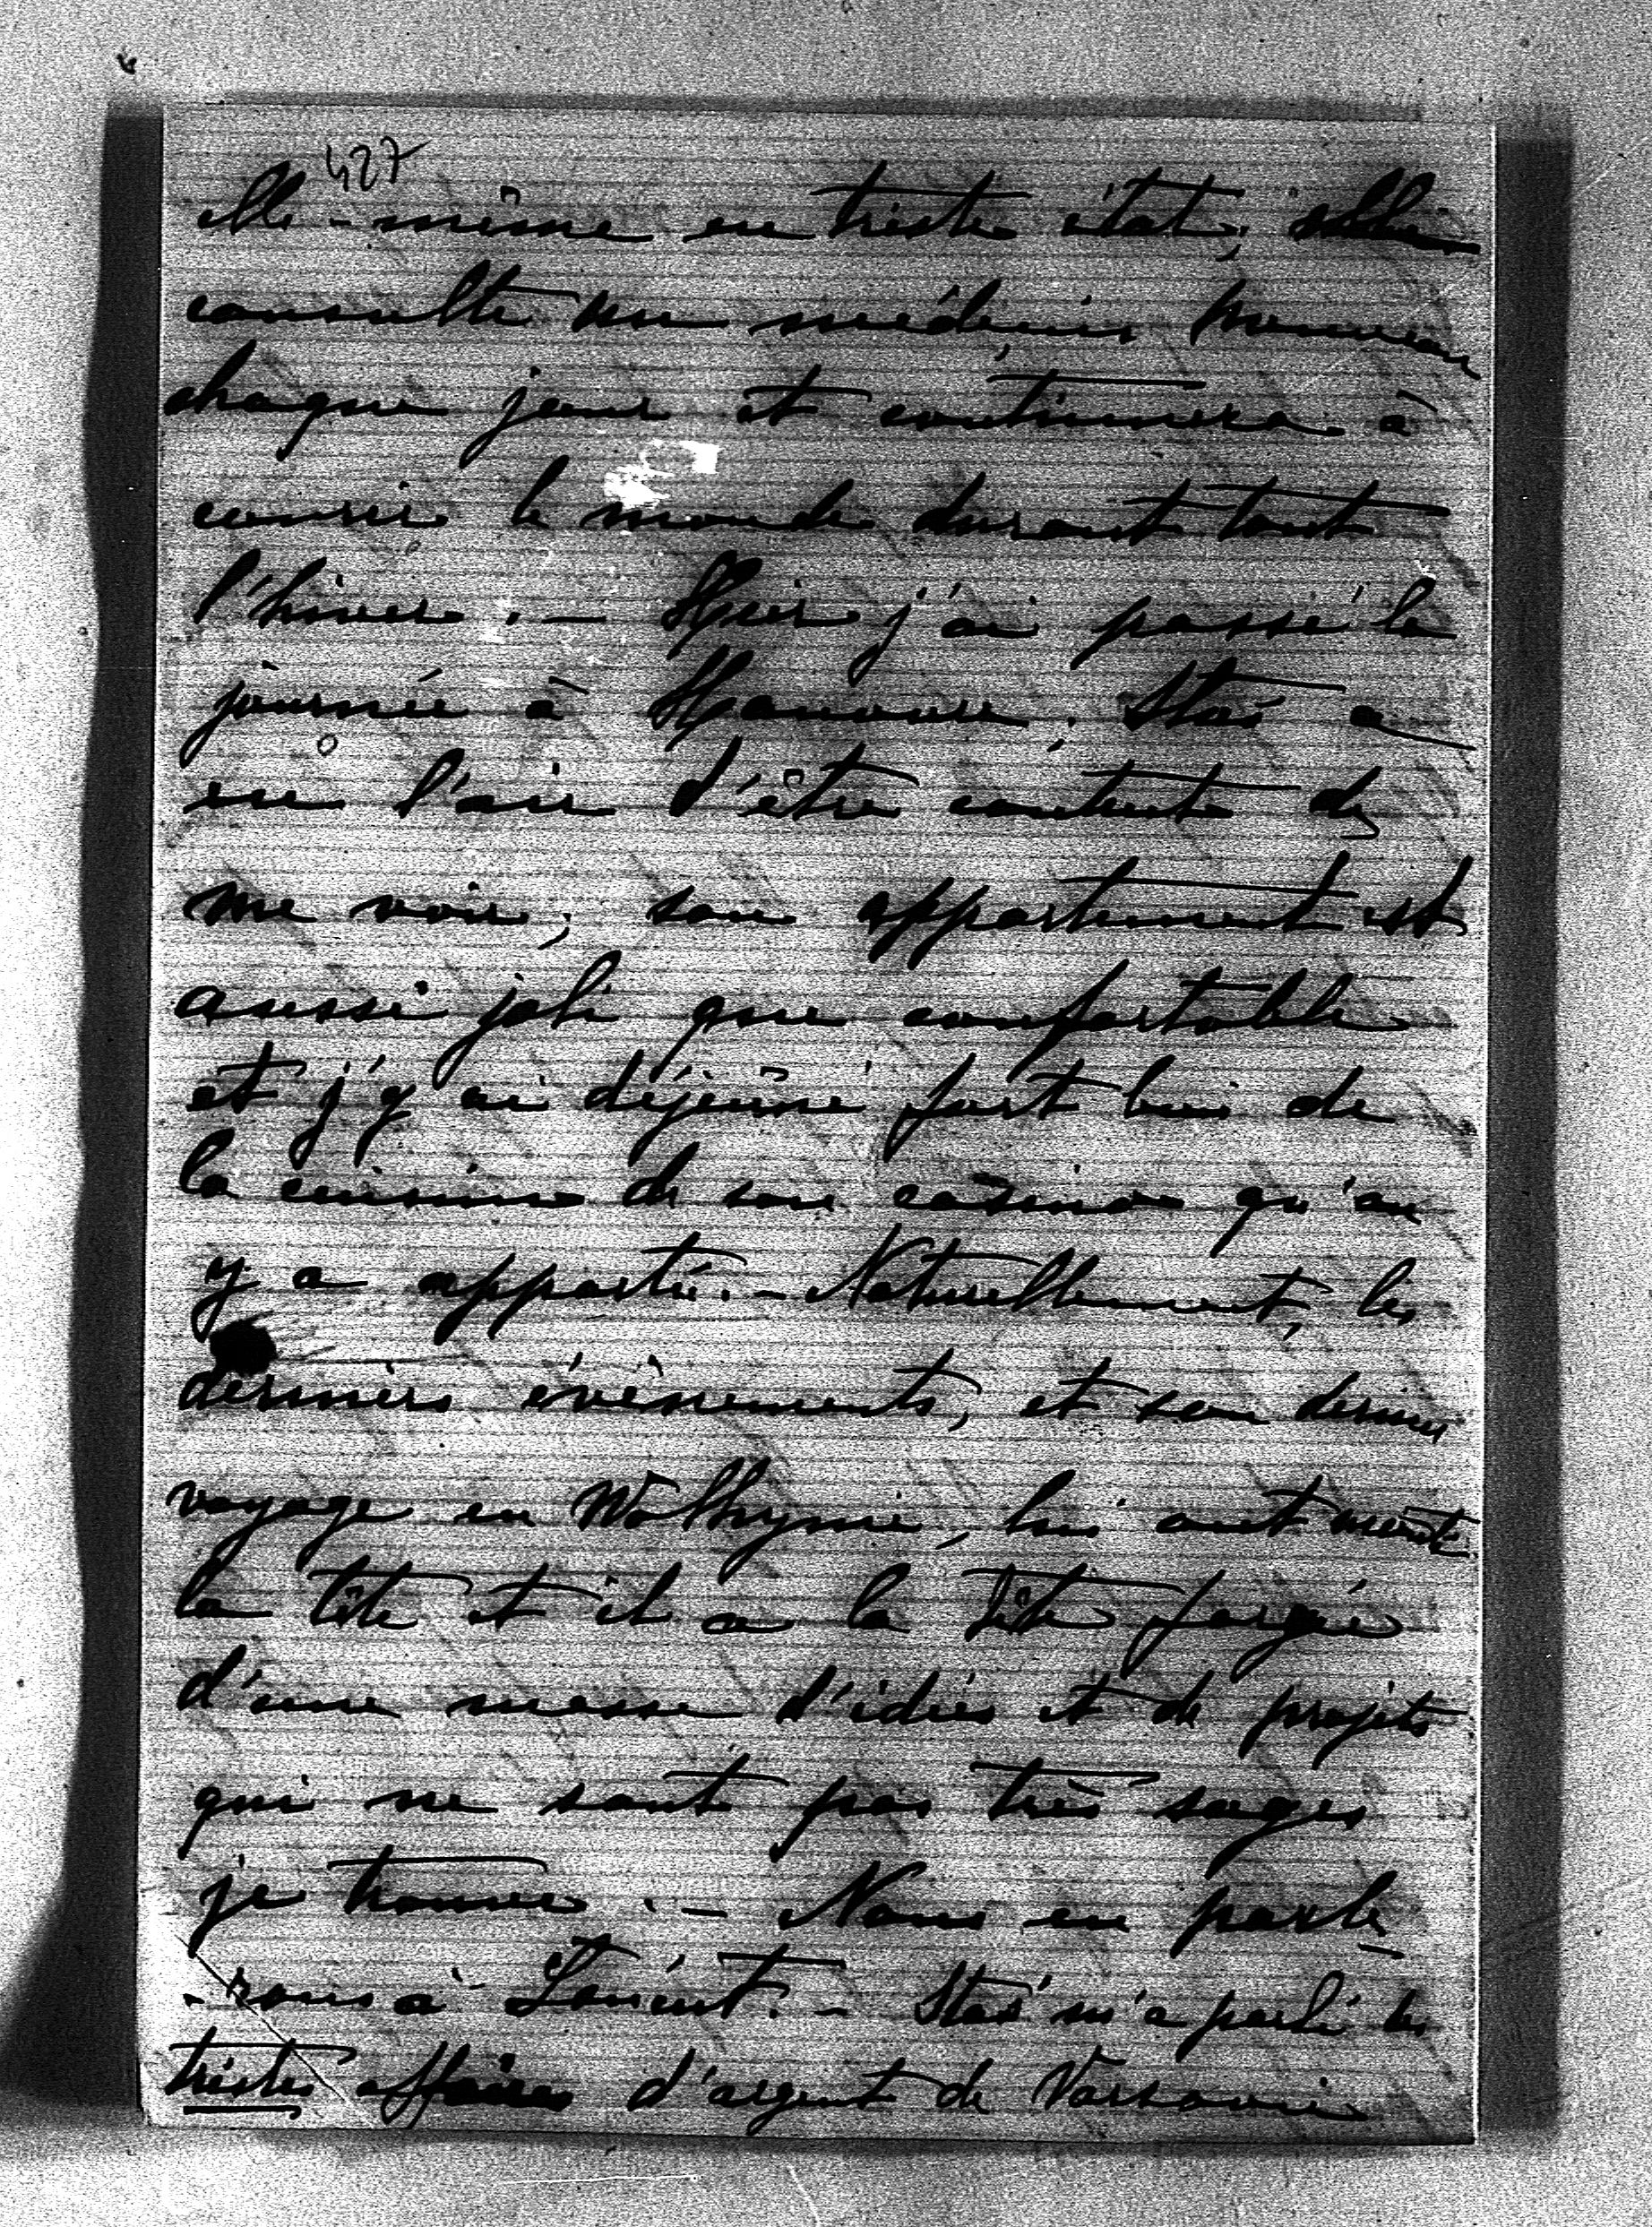 427
elle-même en triste état, elle
consulte un médecin nouveau
chaque jour et continuera à
courir le monde durant tout
l'hiver. - Hier j'ai passé la
journée à Hanovre. Stas a
eu l'air d'être content de
me voir, son appartement est
aussi joli que confortable
et j'y ai déjeuné fort bien de
la cuisine de son casino qu'on
y a apporté. - Naturellement, les
derniers évènements, et son dernier
voyage en Wolhynie, lui ont monté
la tête et il a la tête forgée
d'une masse d'idées et de projets
qui ne sont pas très sages
je trouve. - Nous en parle-
-rons à Lancut. - Stas m'a parlé des
tristes affaires d'argent de Varsovie